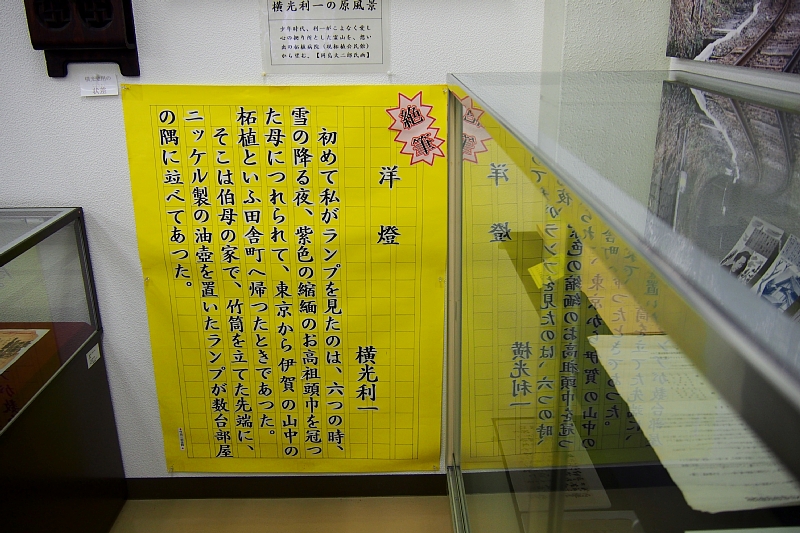 横光利一の原風景
少年時代、利一がこよなく愛し
状箱
絶筆
洋燈
横光利一
初めて私がランプを見たのは、六つの時、
雪の降る夜、紫色の縮緬のお高祖頭巾を冠つ
た母につれられて、東京から伊賀の山中の
柘植といふ田舎町へ帰つたときであつた。
そこは伯母の家で、竹筒を立てた先端に、
ニッケル製の油壺を置いたランプが数台部屋
の隅に竝べてあつた。